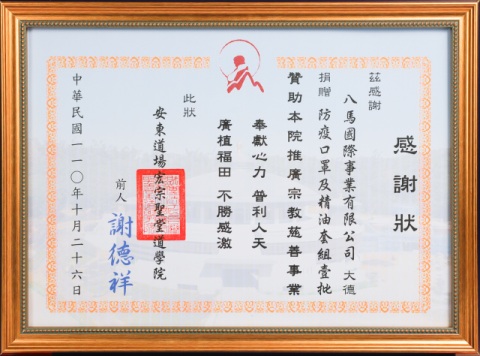 感謝狀
茲感謝
八馬國際事業有限公司 大德
捐贈 防疫口罩及精油套組壹批
贊助本院推廣宗教慈善事業
奉獻心力 普利人天
廣植福田 不勝感激
此狀
安東道場宏宗聖堂道學院
前人 謝德祥
中華民國一一〇年十月二十六日